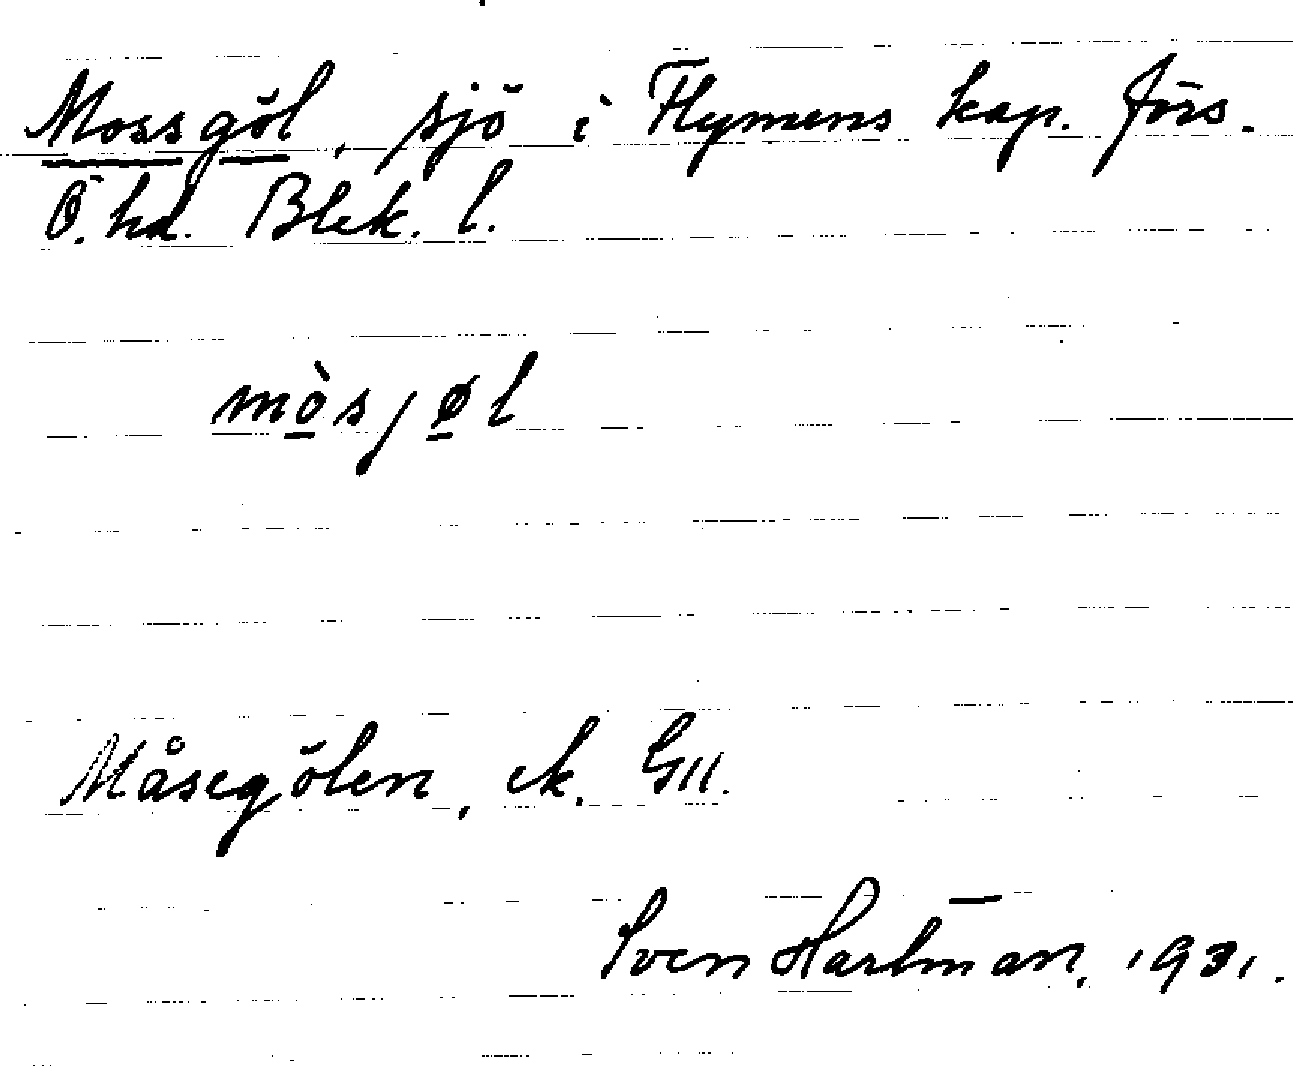 Mossgöl, sjö i Flymens kap. förs.
Ö. hd. Blek. l.
mò̱sjø̱l
Måsegölen, ek. G11.
Sven Hartman, 1931.